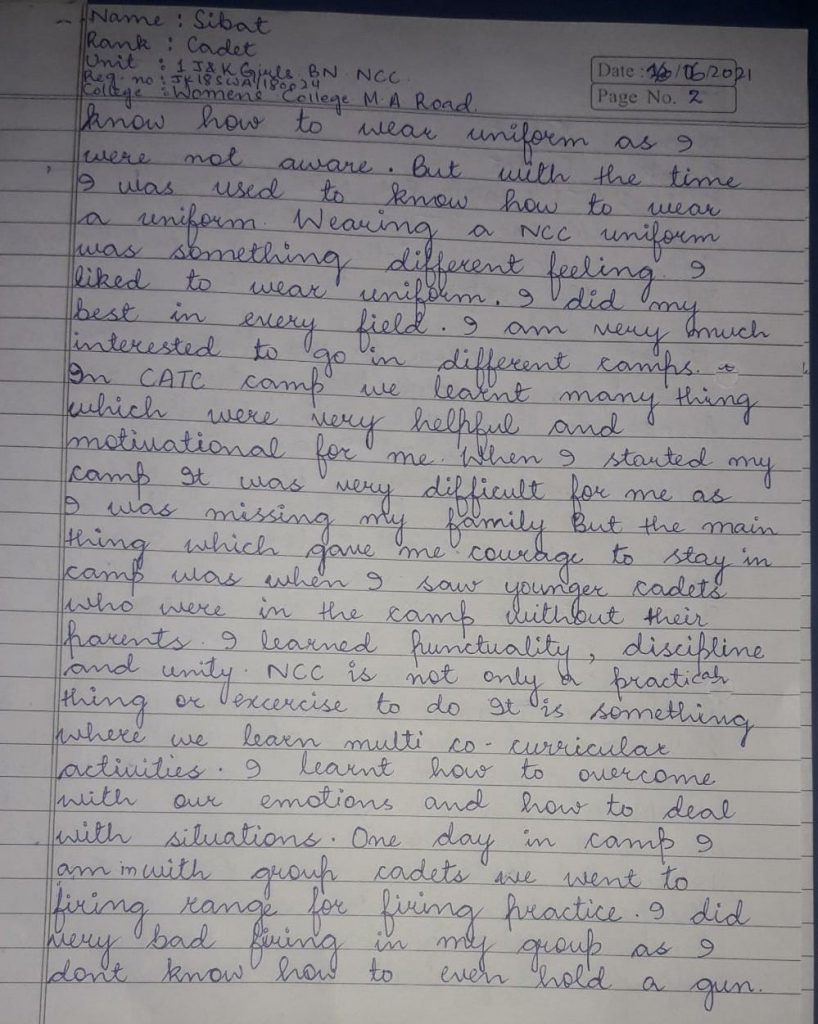 Name : Sibat
Rank : Cadet
Unit : 1 J&K Girls BN NCC
Reg. no : JK18SWA/180024
College : Womens College M.A Road.
Date : 16/06/2021
Page No. 2
know how to wear uniform as I
were not aware. But with the time
I was used to know how to wear
a uniform. Wearing a NCC uniform
was something different feeling. I
liked to wear uniform. I did my
best in every field. I am very much
interested to go in different camps.
In CATC camp we learnt many thing
which were very helpful and
motivational for me. When I started my
camp It was very difficult for me as
I was missing my family But the main
thing which gave me courage to stay in
camp was when I saw younger cadets
who were in the camp without their
parents. I learned punctuality, discipline
and unity. NCC is not only a practical
thing or excercise to do It is something
where we learn multi co-curricular
activities. I learnt how to overcome
with our emotions and how to deal
with situations. One day in camp I
am in with group cadets we went to
firing range for firing practice. I did
very bad firing in my group as I
dont know how to even hold a gun.